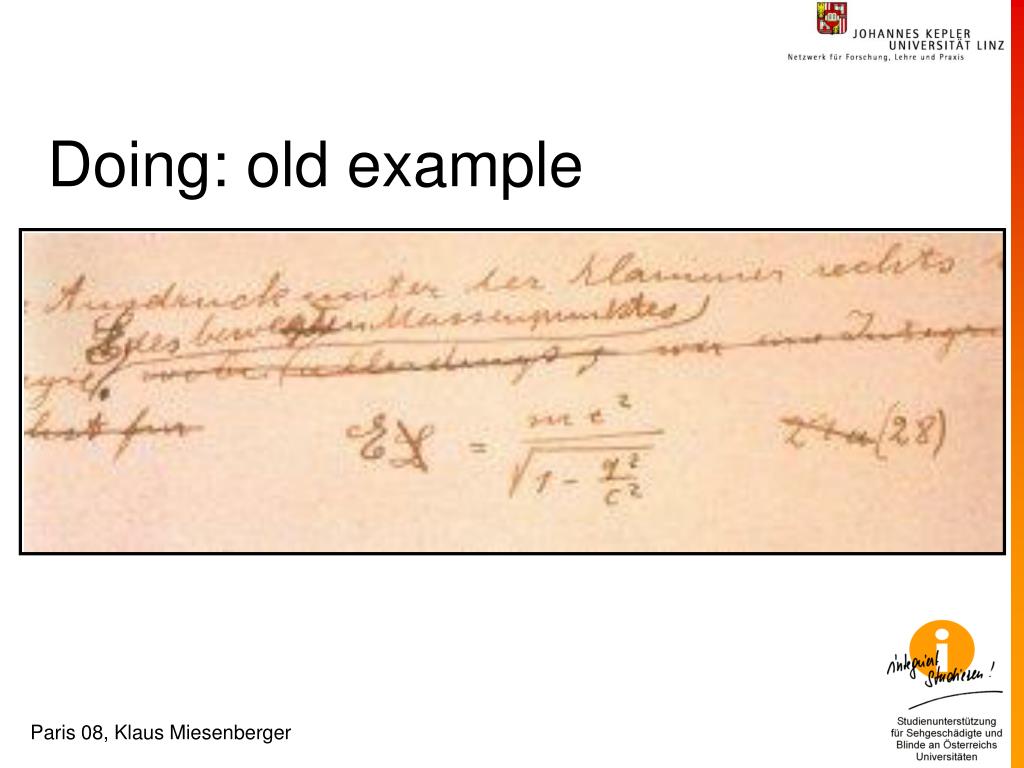 JOHANNES KEPLER
UNIVERSITÄT LINZ
Netzwerk für Forschung, Lehre und Praxis
Doing: old example
Ausdruck unter der Klammer rechts
E des bewegten Massenpunktes
wobei (allerdings,
E L = mc² / √1 - q²/c² (28)
integriert
studieren!
Studienunterstützung
für Sehgeschädigte und
Blinde an Österreichs
Universitäten
Paris 08, Klaus Miesenberger